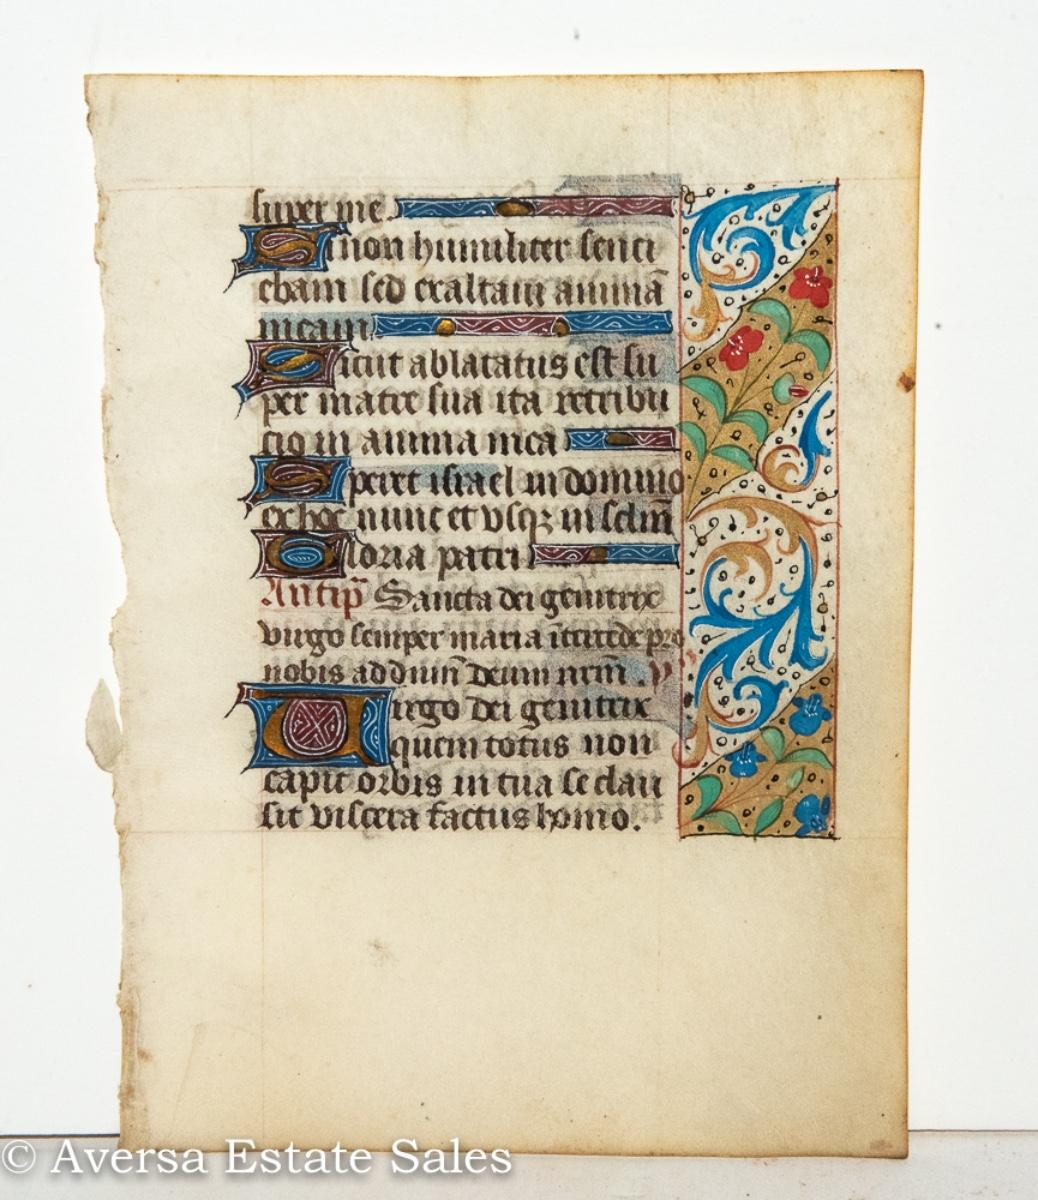 super me
Si non humiliter senti
ebam sed exaltaui animā
meam
Sicut ablatatus est su
per matre sua ita retribu
cio in anima mea
Speret israel in domino
ex hoc nunc et vsqʒ in sclm̄
Gloria patri
Antiph̄ Sancta dei genitrix
virgo semper maria ītercede pro
nobis ad dnm̄ deum nrm̄. v̄s
Uirgo dei genitrix
quem totus non
capit orbis in tua se clau
sit viscera factus homo.
© Aversa Estate Sales